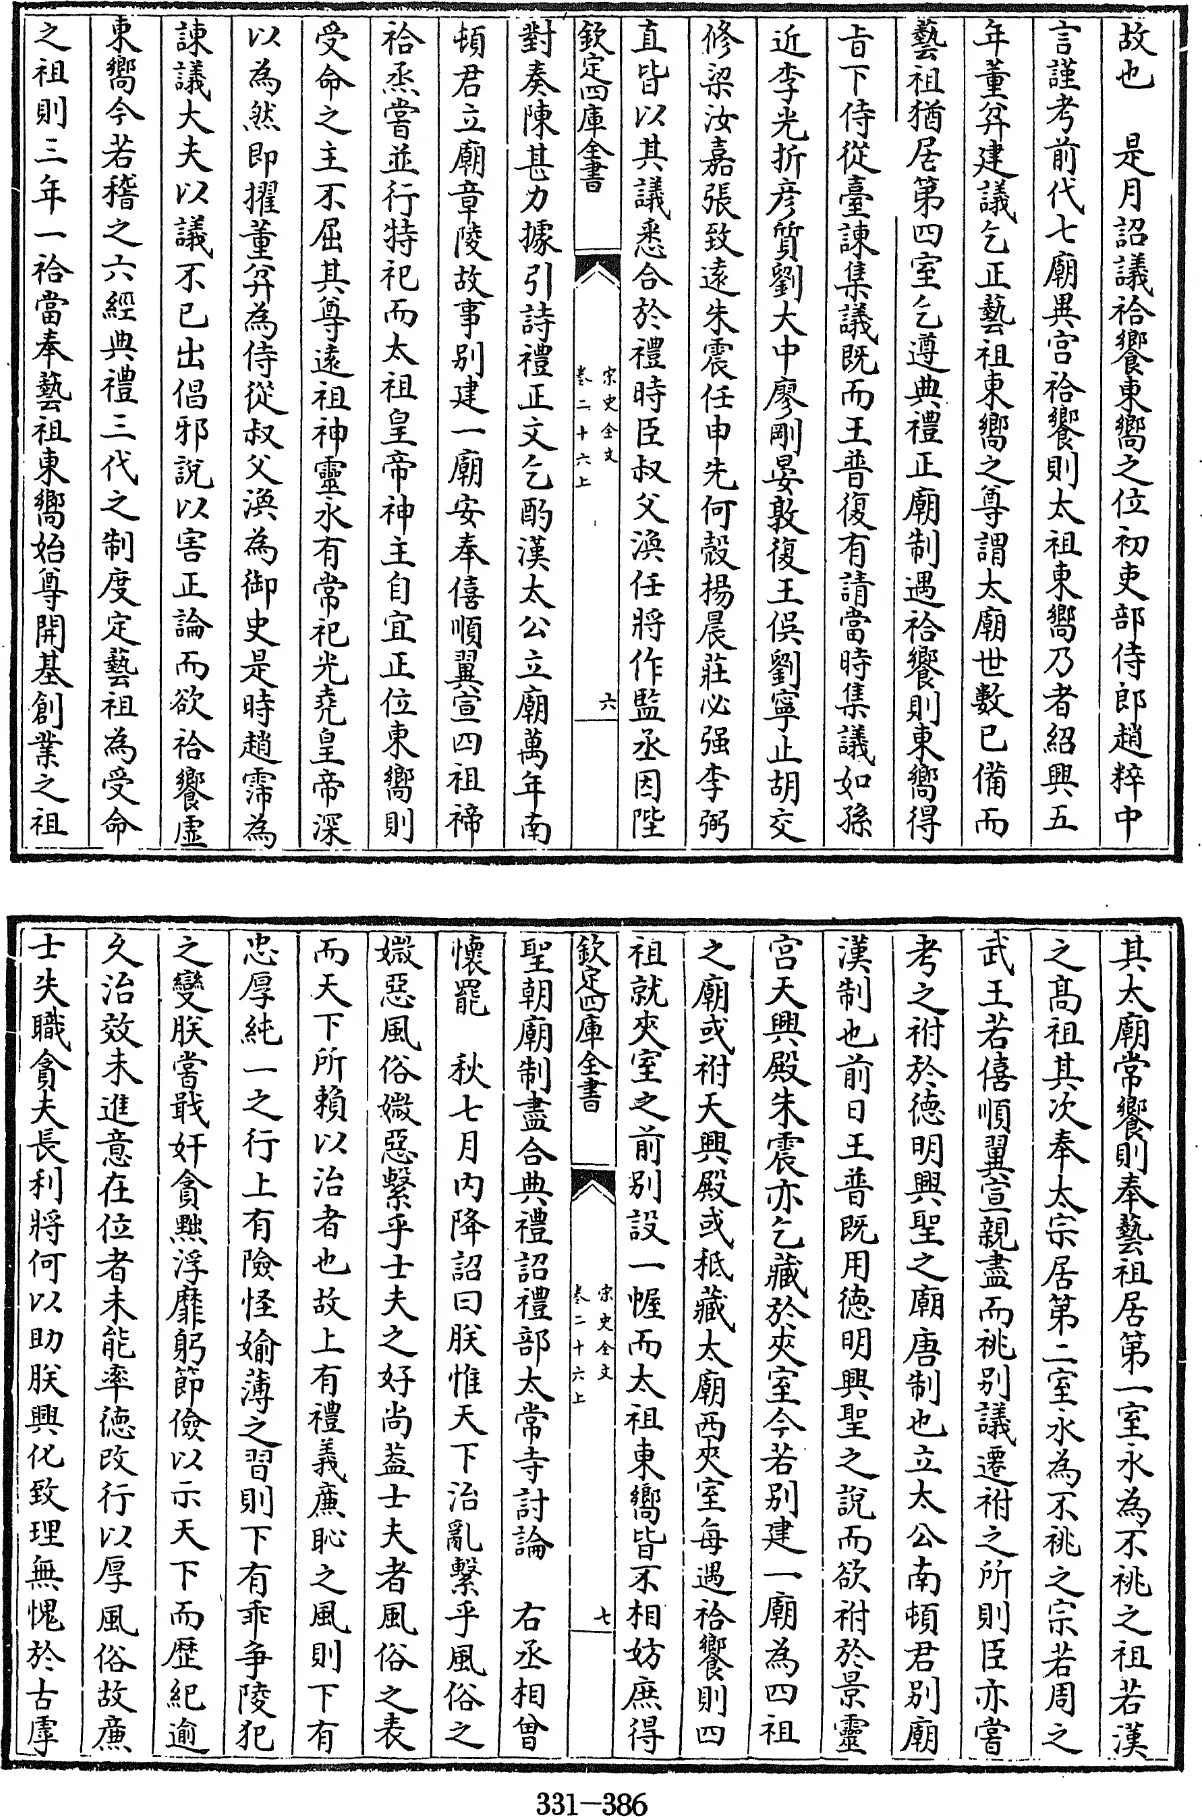 故也　是月詔議祫饗東嚮之位初吏部侍郎趙粹中
言謹考前代七廟異宫祫饗則太祖東嚮乃者紹興五
年董弅建議乞正藝祖東嚮之尊謂太廟世數已備而
藝祖猶居第四室乞遵典禮正廟制遇祫饗則東嚮得
旨下侍從臺諫集議既而王普復有請當時集議如孫
近李光折彦質劉大中廖剛晏敦復王俁劉寧止胡交
修梁汝嘉張致遠朱震任申先何慤楊晨莊必强李弼
直皆以其議悉合於禮時臣叔父渙任將作監丞因陛
欽定四庫全書
宋史全文
卷二十六上
六
對奏陳甚力據引詩禮正文乞酌漢太公立廟萬年南
頓君立廟章陵故事别建一廟安奉僖順翼宣四祖禘
祫烝嘗並行特祀而太祖皇帝神主自宜正位東嚮則
受命之主不屈其尊遠祖神靈永有常祀光堯皇帝深
以為然即擢董弅為侍從叔父渙為御史是時趙霈為
諫議大夫以議不已出倡邪說以害正論而欲祫饗虚
東嚮今若稽之六經典禮三代之制度定藝祖為受命
之祖則三年一祫當奉藝祖東嚮始尊開基創業之祖
其太廟常饗則奉藝祖居第一室永為不祧之祖若漢
之髙祖其次奉太宗居第二室永為不祧之宗若周之
武王若僖順翼宣親盡而祧别議遷祔之所則臣亦嘗
考之祔於徳明興聖之廟唐制也立太公南頓君别廟
漢制也前日王普既用徳明興聖之説而欲祔於景靈
宫天興殿朱震亦乞藏於夾室今若别建一廟為四祖
之廟或祔天興殿或秪藏太廟西夾室每遇祫饗則四
祖就夾室之前别設一幄而太祖東嚮皆不相妨庶得
欽定四庫全書
宋史全文
卷二十六上
七
聖朝廟制盡合典禮詔禮部太常寺討論　右丞相曾
懷罷　秋七月内降詔曰朕惟天下治亂繫乎風俗之
媺惡風俗媺惡繫乎士夫之好尚葢士夫者風俗之表
而天下所賴以治者也故上有禮義亷恥之風則下有
忠厚純一之行上有險怪媮薄之習則下有乖争陵犯
之變朕嘗戢奸貪黜浮靡躬節儉以示天下而歴紀逾
久治效未進意在位者未能率徳改行以厚風俗故亷
士失職貪夫長利將何以助朕興化致理無愧於古虖
331—386